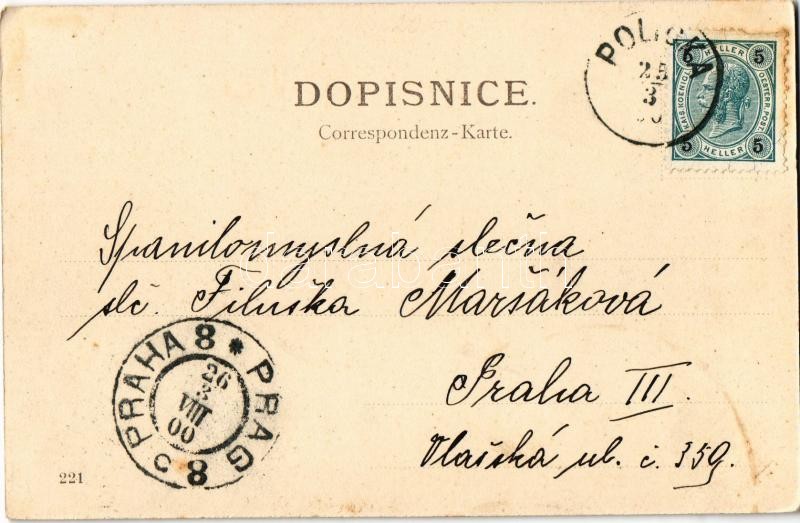 POLIČKA
25
3
00
5 HELLER 5
KAIS. KOENIGL.
OESTERR. POST.
5 HELLER 5
DOPISNICE.
Correspondenz-Karte.
Spanilomyslná slečna
slč. Filuška Maršáková
Praha III.
Vlašská ul. č. 359.
PRAHA 8 * PRAG 8 c
26
3
VIII
00
221
darabanth